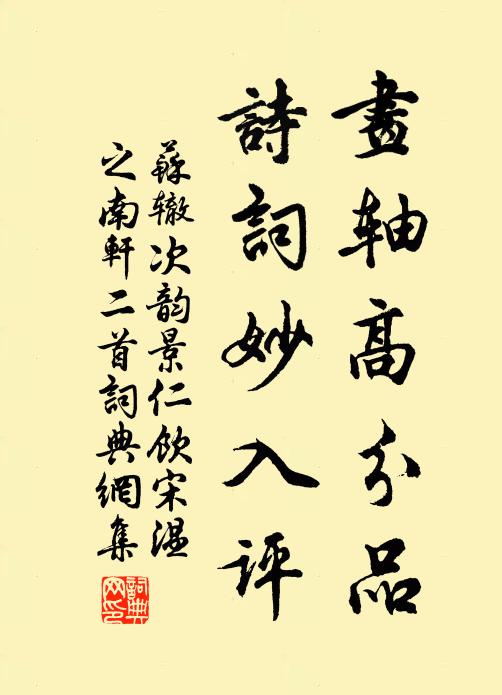 畫轴高分品
詩詞妙入評
蘇辙次韵景仁飲宋温
之南軒二首詞典網集
詞典网印